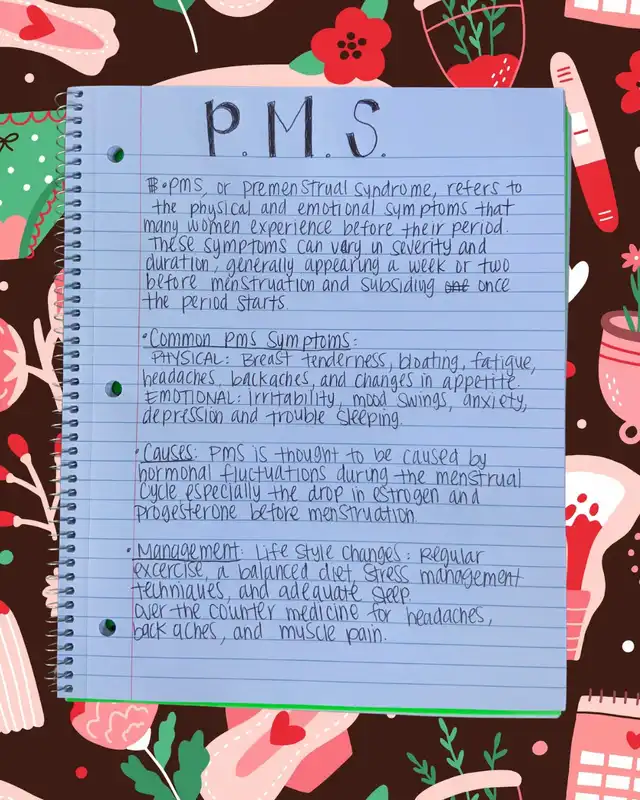 P.M.S.
•PMS, or premenstrual syndrome, refers to
the physical and emotional symptoms that
many women experience before their period.
These symptoms can vary in severity and
duration, generally appearing a week or two
before menstruation and subsiding one once
the period starts.
•Common PMS Symptoms:
PHYSICAL: Breast tenderness, bloating, fatigue,
headaches, backaches, and changes in appetite.
EMOTIONAL: Irritability, mood swings, anxiety,
depression and trouble sleeping.
•Causes: PMS is thought to be caused by
hormonal fluctuations during the menstrual
cycle especially the drop in estrogen and
progesterone before menstruation.
•Management: Life style changes: Regular
excercise, a balanced diet, stress management
techniques, and adequate sleep.
Over the counter medicine for headaches,
back aches, and muscle pain.